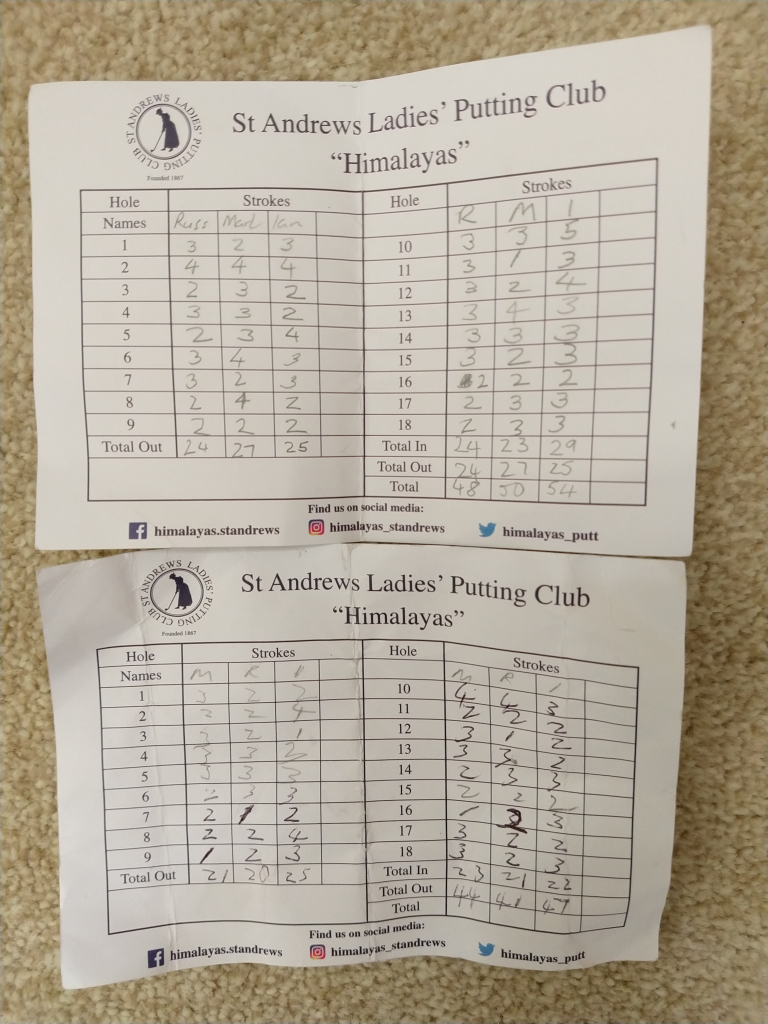 ST ANDREWS LADIES' PUTTING CLUB
Founded 1867
St Andrews Ladies' Putting Club
"Himalayas"
Hole Strokes
Names Russ Mark Ian
1 3 2 3
2 4 4 4
3 2 3 2
4 3 3 2
5 2 3 4
6 3 4 3
7 3 2 3
8 2 4 2
9 2 2 2
Total Out 24 27 25
Hole Strokes
R M I
10 3 3 5
11 3 1 3
12 3 2 4
13 3 4 3
14 3 3 3
15 3 2 3
16 2 2 2
17 2 3 3
18 2 3 3
Total In 24 23 29
Total Out 24 27 25
Total 48 50 54
Find us on social media:
himalayas.standrews himalayas_standrews himalayas_putt
ST ANDREWS LADIES' PUTTING CLUB
Founded 1867
St Andrews Ladies' Putting Club
"Himalayas"
Hole Strokes
Names M R I
1 3 2 2
2 2 2 4
3 3 2 1
4 3 3 2
5 3 3 3
6 2 3 3
7 2 1 2
8 2 2 4
9 1 2 3
Total Out 21 20 25
Hole Strokes
M R I
10 4 4 3
11 2 2 2
12 3 1 2
13 3 3 2
14 2 3 3
15 2 2 2
16 1 2 3
17 3 2 2
18 3 2 3
Total In 23 21 22
Total Out 44 41 47
Total
Find us on social media:
himalayas.standrews himalayas_standrews himalayas_putt